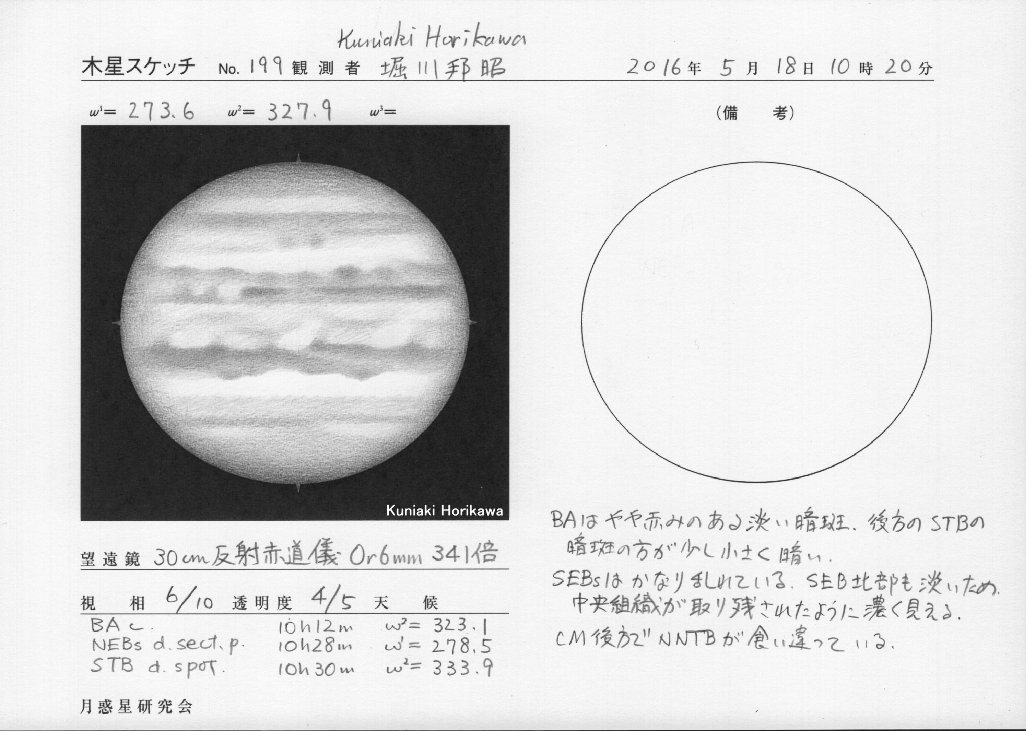 Kuniaki Horikawa
木星スケッチ No. 199 観測者 堀川邦昭 2016年 5月 18日 10時 20分
ω¹= 273.6 ω²= 327.9 ω³=
(備 考)
Kuniaki Horikawa
BAはやや赤みのある淡い暗斑、後方のSTBの
暗斑の方が少し小さく暗い.
SEBsはかなり乱れている. SEB北部も淡いため、
中央組織が取り残されたように濃く見える.
CM後方でNNTBが食い違っている.
望遠鏡 30cm反射赤道儀 Or6mm 341倍
視 相 6/10 透明度 4/5 天 候
BA c. 10h12m ω²= 323.1
NEBs d.sect.p. 10h28m ω¹= 278.5
STB d.spot. 10h30m ω²= 333.9
月惑星研究会